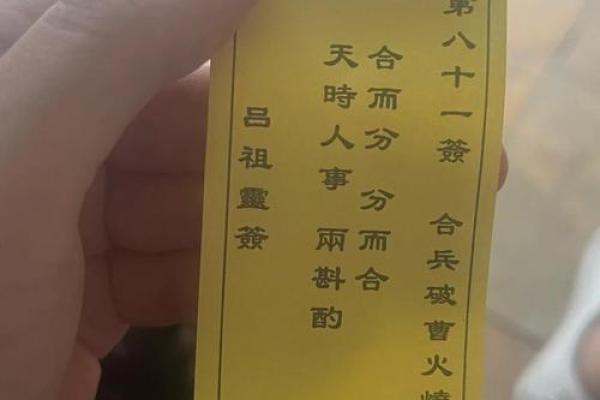 第八十一簽 合兵破曹火燒
合而分 分而合
天時人事 兩斟酌
呂祖靈簽